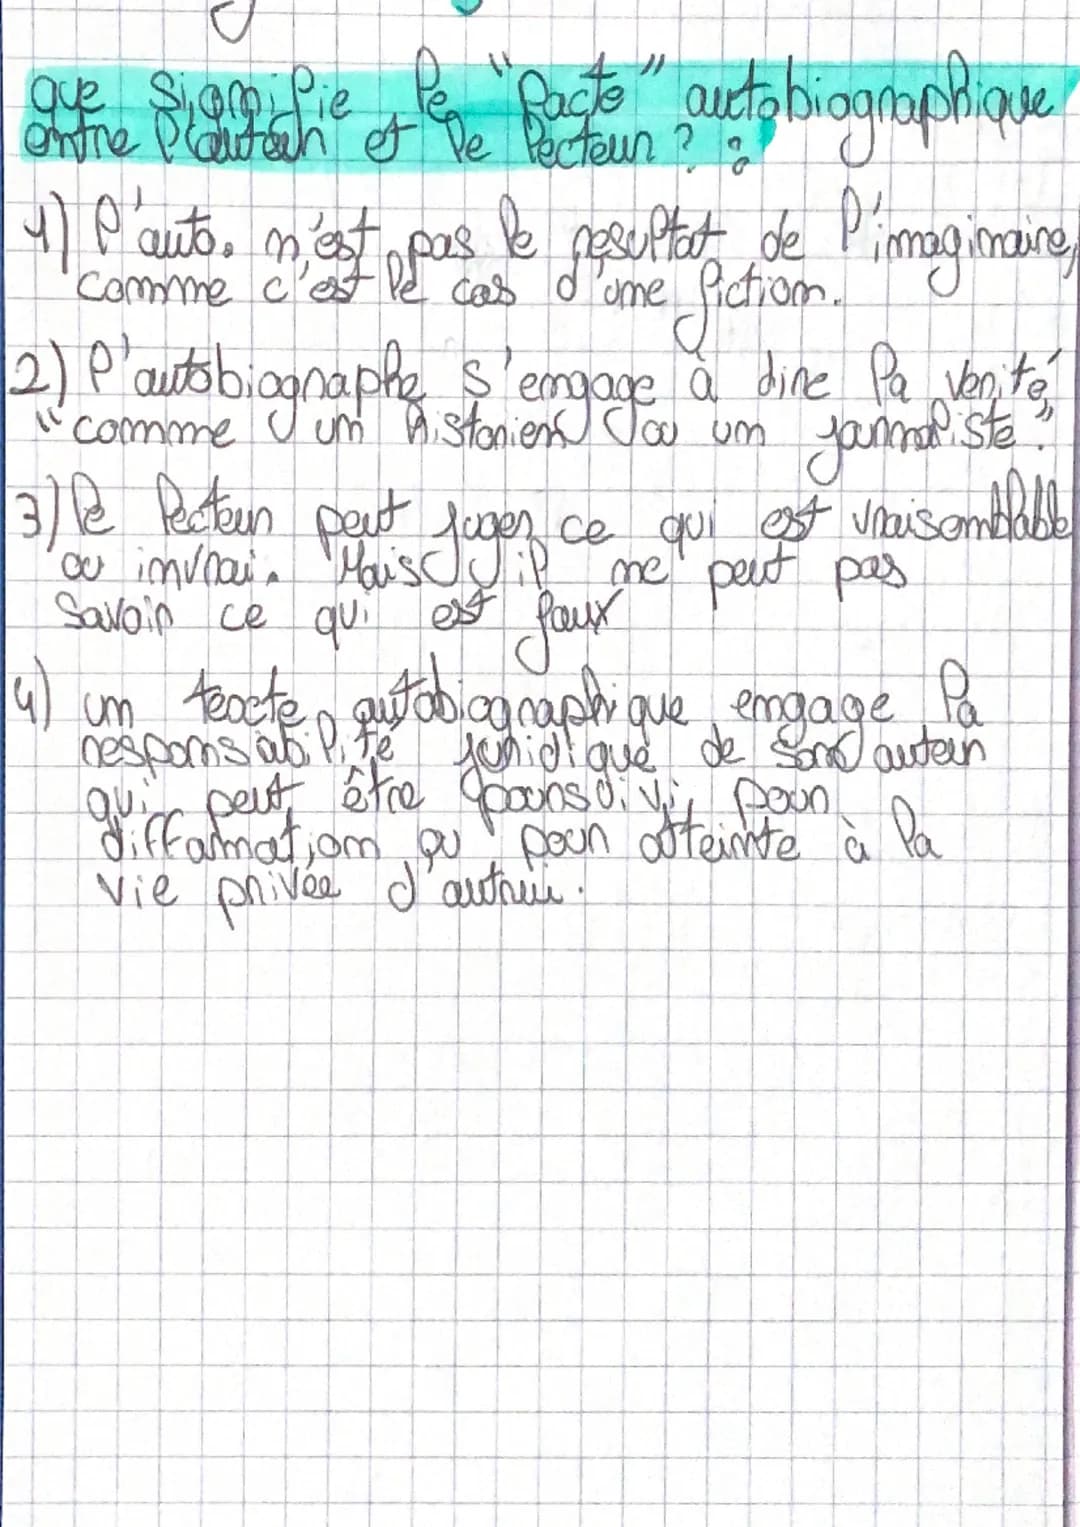 que signifie le "Pacte" autobiographique
entre l'auteur et le lecteur ? :
1) l'auto. n'est pas le resultat de l'immaginaire,
comme c'est le cas d'une fiction.
2) l'autobiographe s'engage à dire la verité,
"comme un historien ou un journaliste".
3) le lecteur peut juger ce qui est vraisemblable
ou invrai. Mais il ne peut pas
savoir ce qui est faux
4) un texte autobiographique engage la
responsabilité juridique de son auteur
qui peut être poursuivi pour
diffamation ou pour atteinte à la
vie privée d'autrui.